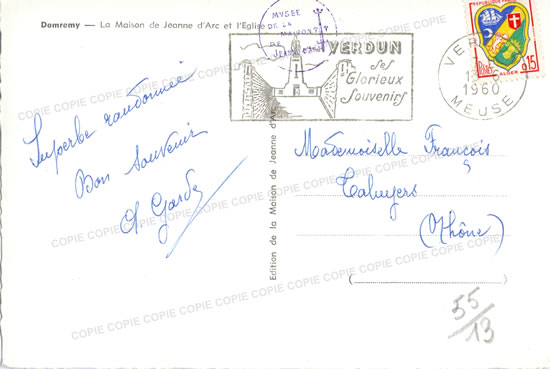 Domremy — La Maison de Jeanne d'Arc et l'Eglise
MUSEE
DE LA
MAISON
DE
JEANNE D'ARC
VERDUN
Ses
Glorieux
Souvenirs
VERDUN
1960
MEUSE
REPUBLIQUE FRANÇAISE
POSTES
0,15
ALGER
Superbe randonnée
Bon souvenir
Edition de la Maison de Jeanne d'Arc
Mademoiselle François
Taluyers
(Rhône)
55/13
COPIE COPIE COPIE COPIE COPIE COPIE COPIE